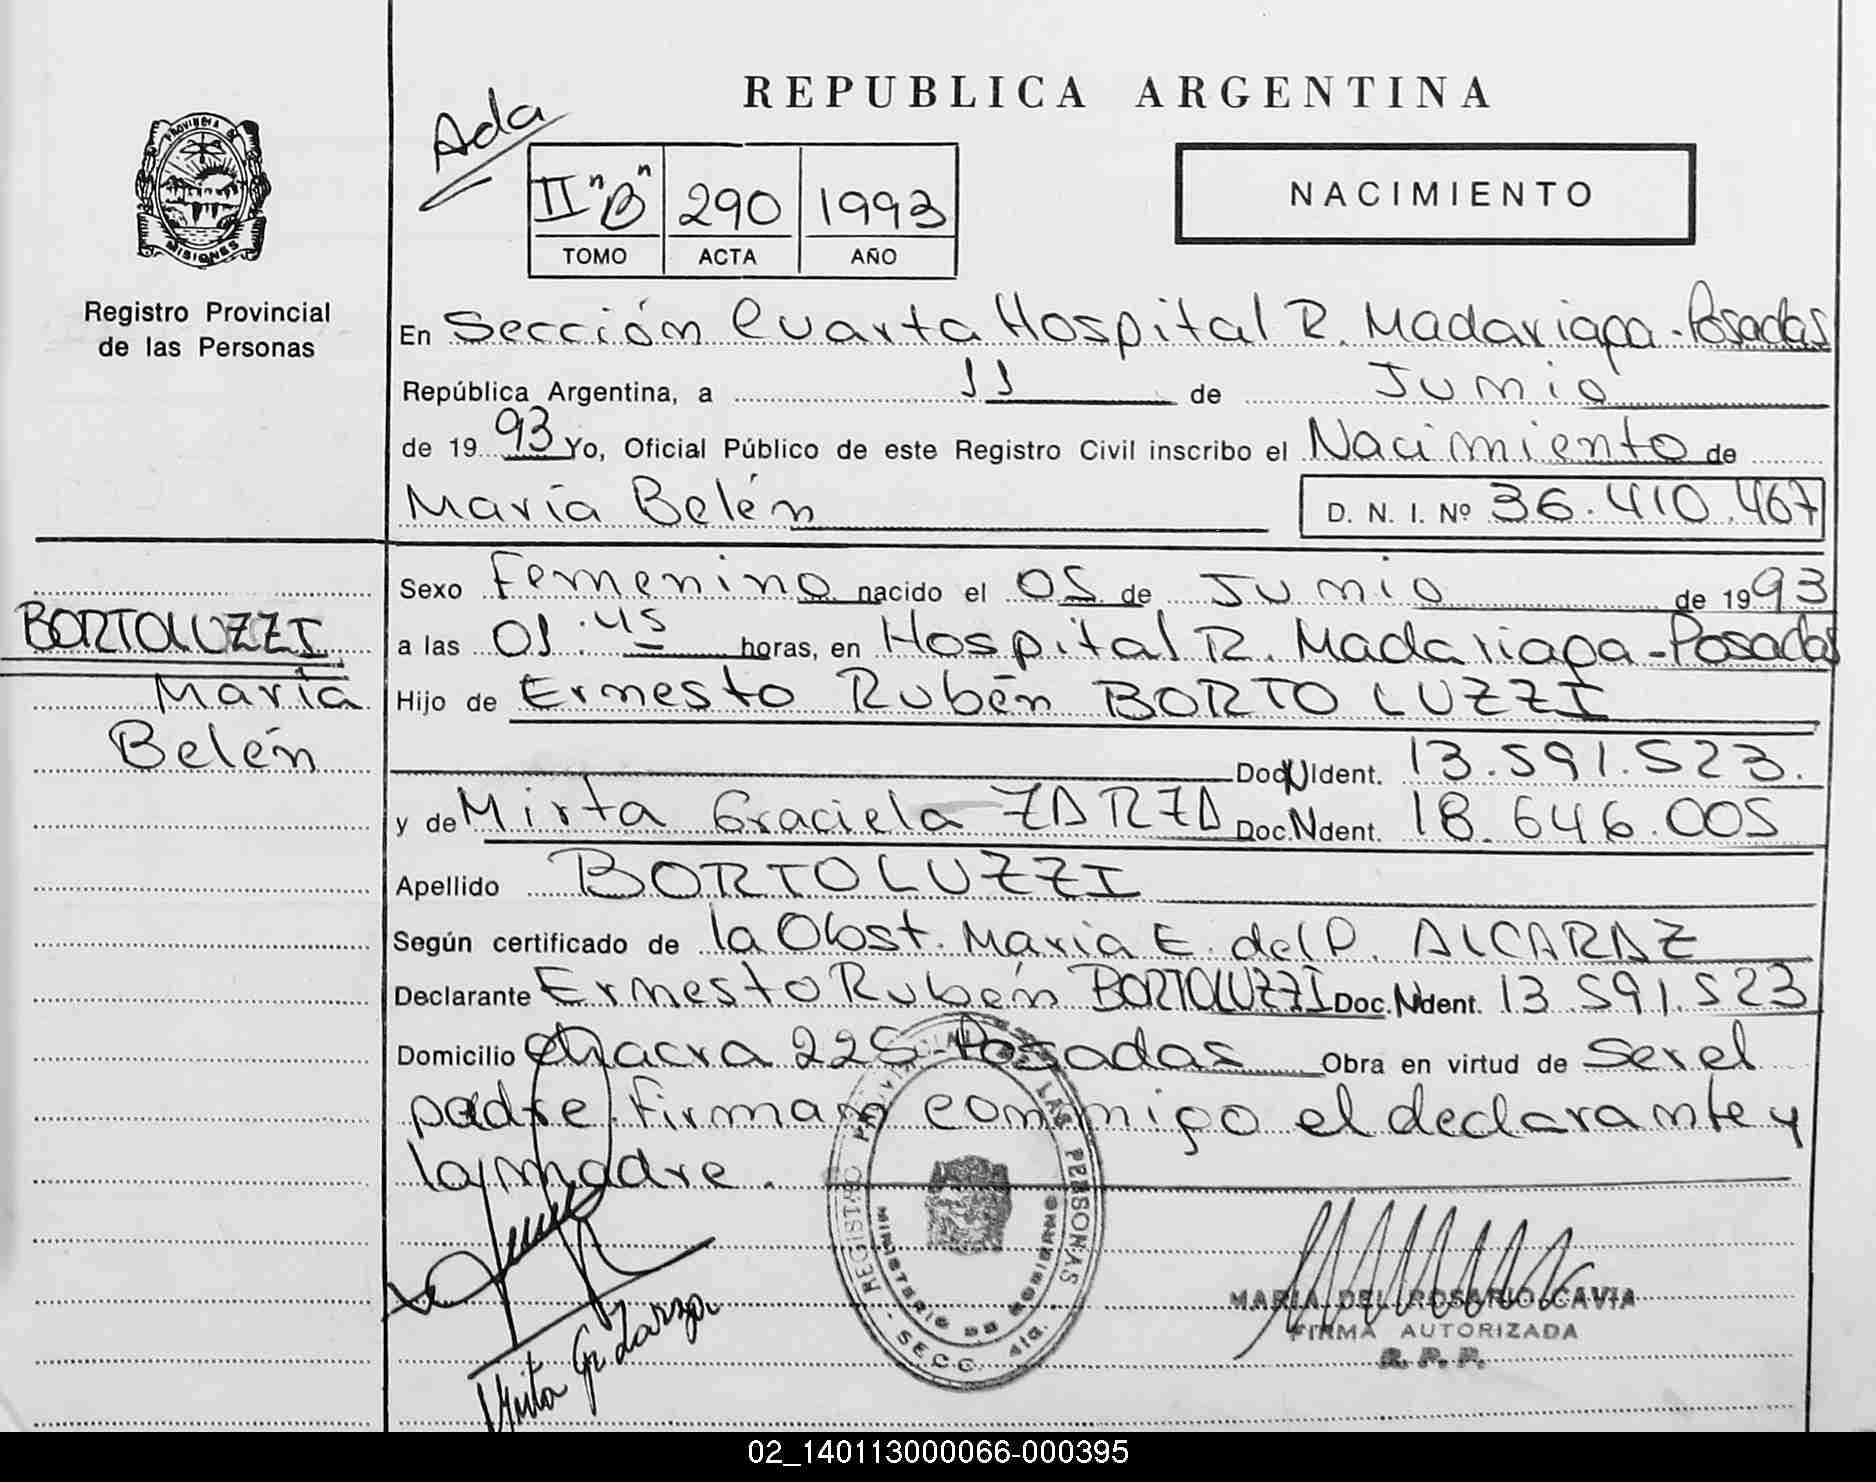 REPUBLICA ARGENTINA
Ada
II "B" 290 1993
TOMO ACTA AÑO
NACIMIENTO
PROVINCIA DE
MISIONES
Registro Provincial
de las Personas
En Sección Cuarta Hospital R. Madariaga - Posadas
República Argentina, a 11 de Junio
de 19 93 Yo, Oficial Público de este Registro Civil inscribo el Nacimiento de
María Belén D. N. I. Nº 36.410.467
Sexo Femenino nacido el 05 de Junio de 19 93
a las 01:45 horas, en Hospital R. Madariaga - Posadas
Hijo de Ernesto Rubén BORTOLUZZI
Doc. N Ident. 13.591.523.
y de Mirta Graciela ZARZA Doc. N Ident. 18.646.005
Apellido BORTOLUZZI
Según certificado de la Obst. Maria E. del P. ALCARAZ
Declarante Ernesto Rubén BORTOLUZZI Doc. N Ident. 13.591.523
Domicilio Chacra 225 - Posadas Obra en virtud de Ser el
padre. Firman conmigo el declarante y
la madre.
BORTOLUZZI
María
Belén
REGISTRO PROVINCIAL DE LAS PERSONAS
MINISTERIO DE GOBIERNO
- SECC. 4ta. -
Mirta G. Zarza
MARIA DEL ROSARIO CAVIA
FIRMA AUTORIZADA
R. P. P.
02_140113000066-000395